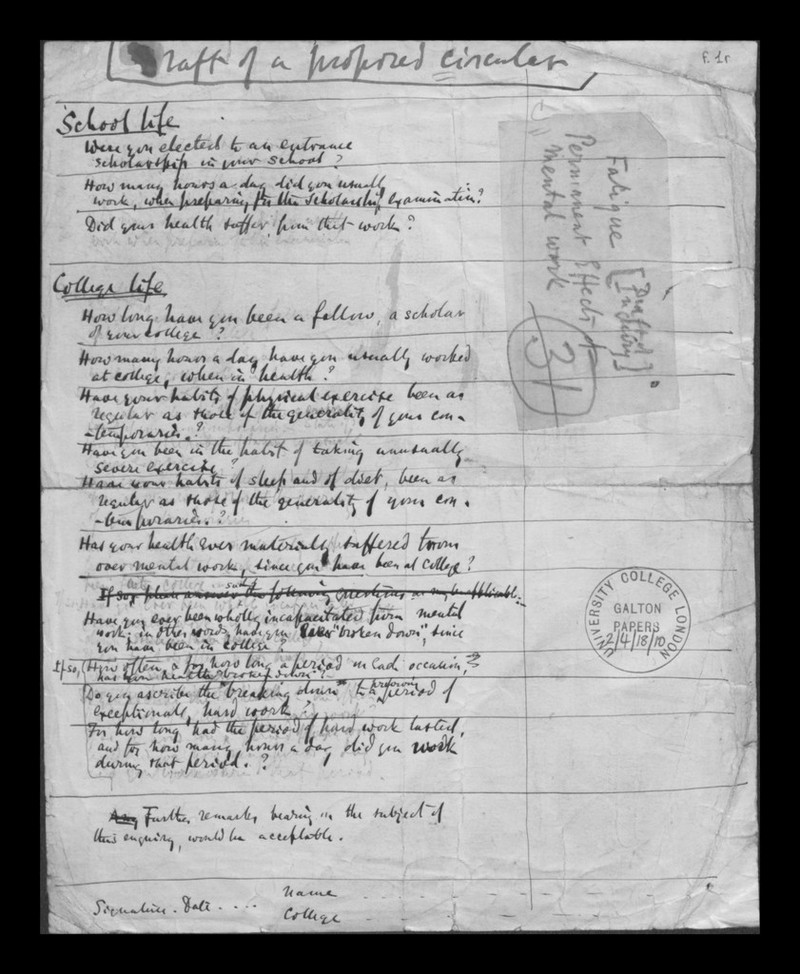 Draft of a proposed circular
f. 1r
School life
Were you elected to an entrance
scholarship in your school?
How many hours a day did you usually
work, when preparing for the scholarship examination?
Did your health suffer from that work?
Fatigue [Drafted Inquiry]
Permanent Effects of
mental work
31
College life
How long have you been a fellow, a scholar
of your college?
How many hours a day have you usually worked
at college, when in health?
Have your habits of physical exercise been as
regular as those of the generality of your con-
-temporaries?
Have you been in the habit of taking unusually
severe exercise?
Have your habits of sleep and of diet, been as
regular as those of the generality of your con-
-temporaries?
Has your health ever materially suffered from
over mental work, since you have been at College?
If so, please answer the following questions
Have you ever been wholly incapacitated from mental
work: in other words, have you "broken down", since
you have been in college?
If so, How often, & for how long a period in each occasion,
has your health broken down?
Do you ascribe the breaking down to a previous period of
exceptionally hard work?
For how long had the period of hard work lasted,
and for how many hours a day did you work
during that period?
Any Further remarks bearing on the subject of
this enquiry, would be acceptable.
Signature. Date ....
Name
College
UNIVERSITY COLLEGE LONDON
GALTON
PAPERS
2/4/18/10